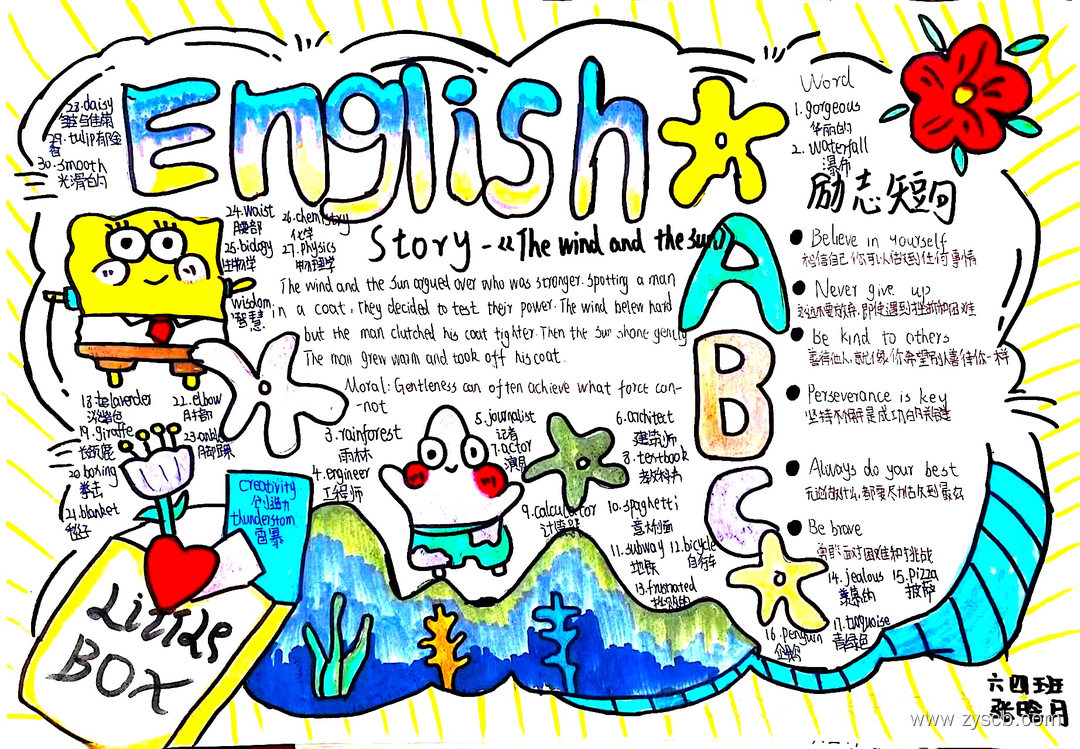 English
Word
1. gorgeous
华丽的
2. waterfall
瀑布
励志短句
Believe in yourself
相信自己你可以做到任何事情
Never give up
永远不要放弃,即使遇到挫折和困难
Be kind to others
善待他人,就像你希望别人善待你一样
Perseverance is key
坚持不懈是成功的关键
Always do your best
无论做什么,都要尽力做到最好
Be brave
勇敢面对困难和挑战
23. daisy
29. tulip郁金
香
30. smooth
光滑的
24. waist
腰部
25. biology
生物学
26. chemistry
化学
27. physics
物理学
wisdom
智慧
Story - 《The wind and the sun》
The wind and the Sun argued over who was stronger. Spotting a man
in a coat, they decided to test their power. The wind belew hard
but the man clutched his coat tighter. Then the sun shone gently
The man grew warm and took off his coat.
Moral: Gentleness can often achieve what force can-
-not
A
B
C
3. rainforest
雨林
4. engineer
工程师
5. journalist
记者
7. actor
演员
6. architect
建筑师
8. textbook
教科书
9. calculator
计算器
10. spaghetti
意大利面
11. subway
地铁
12. bicycle
自行车
13. frustrated
14. jealous
羡慕的
15. pizza
披萨
16. penguin
企鹅
17. turquoise
青绿色
18. telaverder
淡紫色
19. giraffe
长颈鹿
20. boxing
拳击
21. blanket
毯子
22. elbow
肘部
23. ankle
脚踝
creativity
创造力
thunderstom
雷暴
Little
BOX
六四班
张晗月